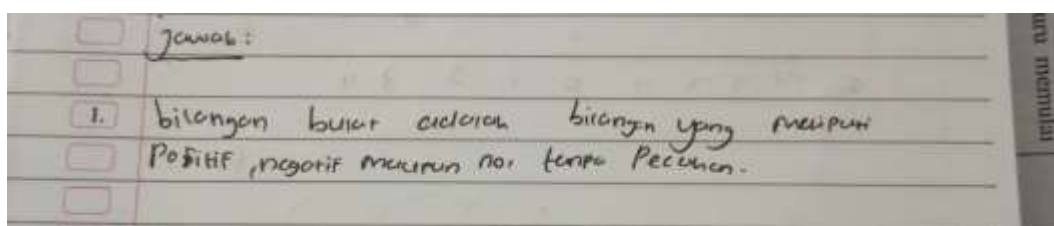 Jawab :
1. bilangan bulat adalah bilangan yang meliputi
Positif, negatif maupun nol tanpa Pecahan.
uru memulai